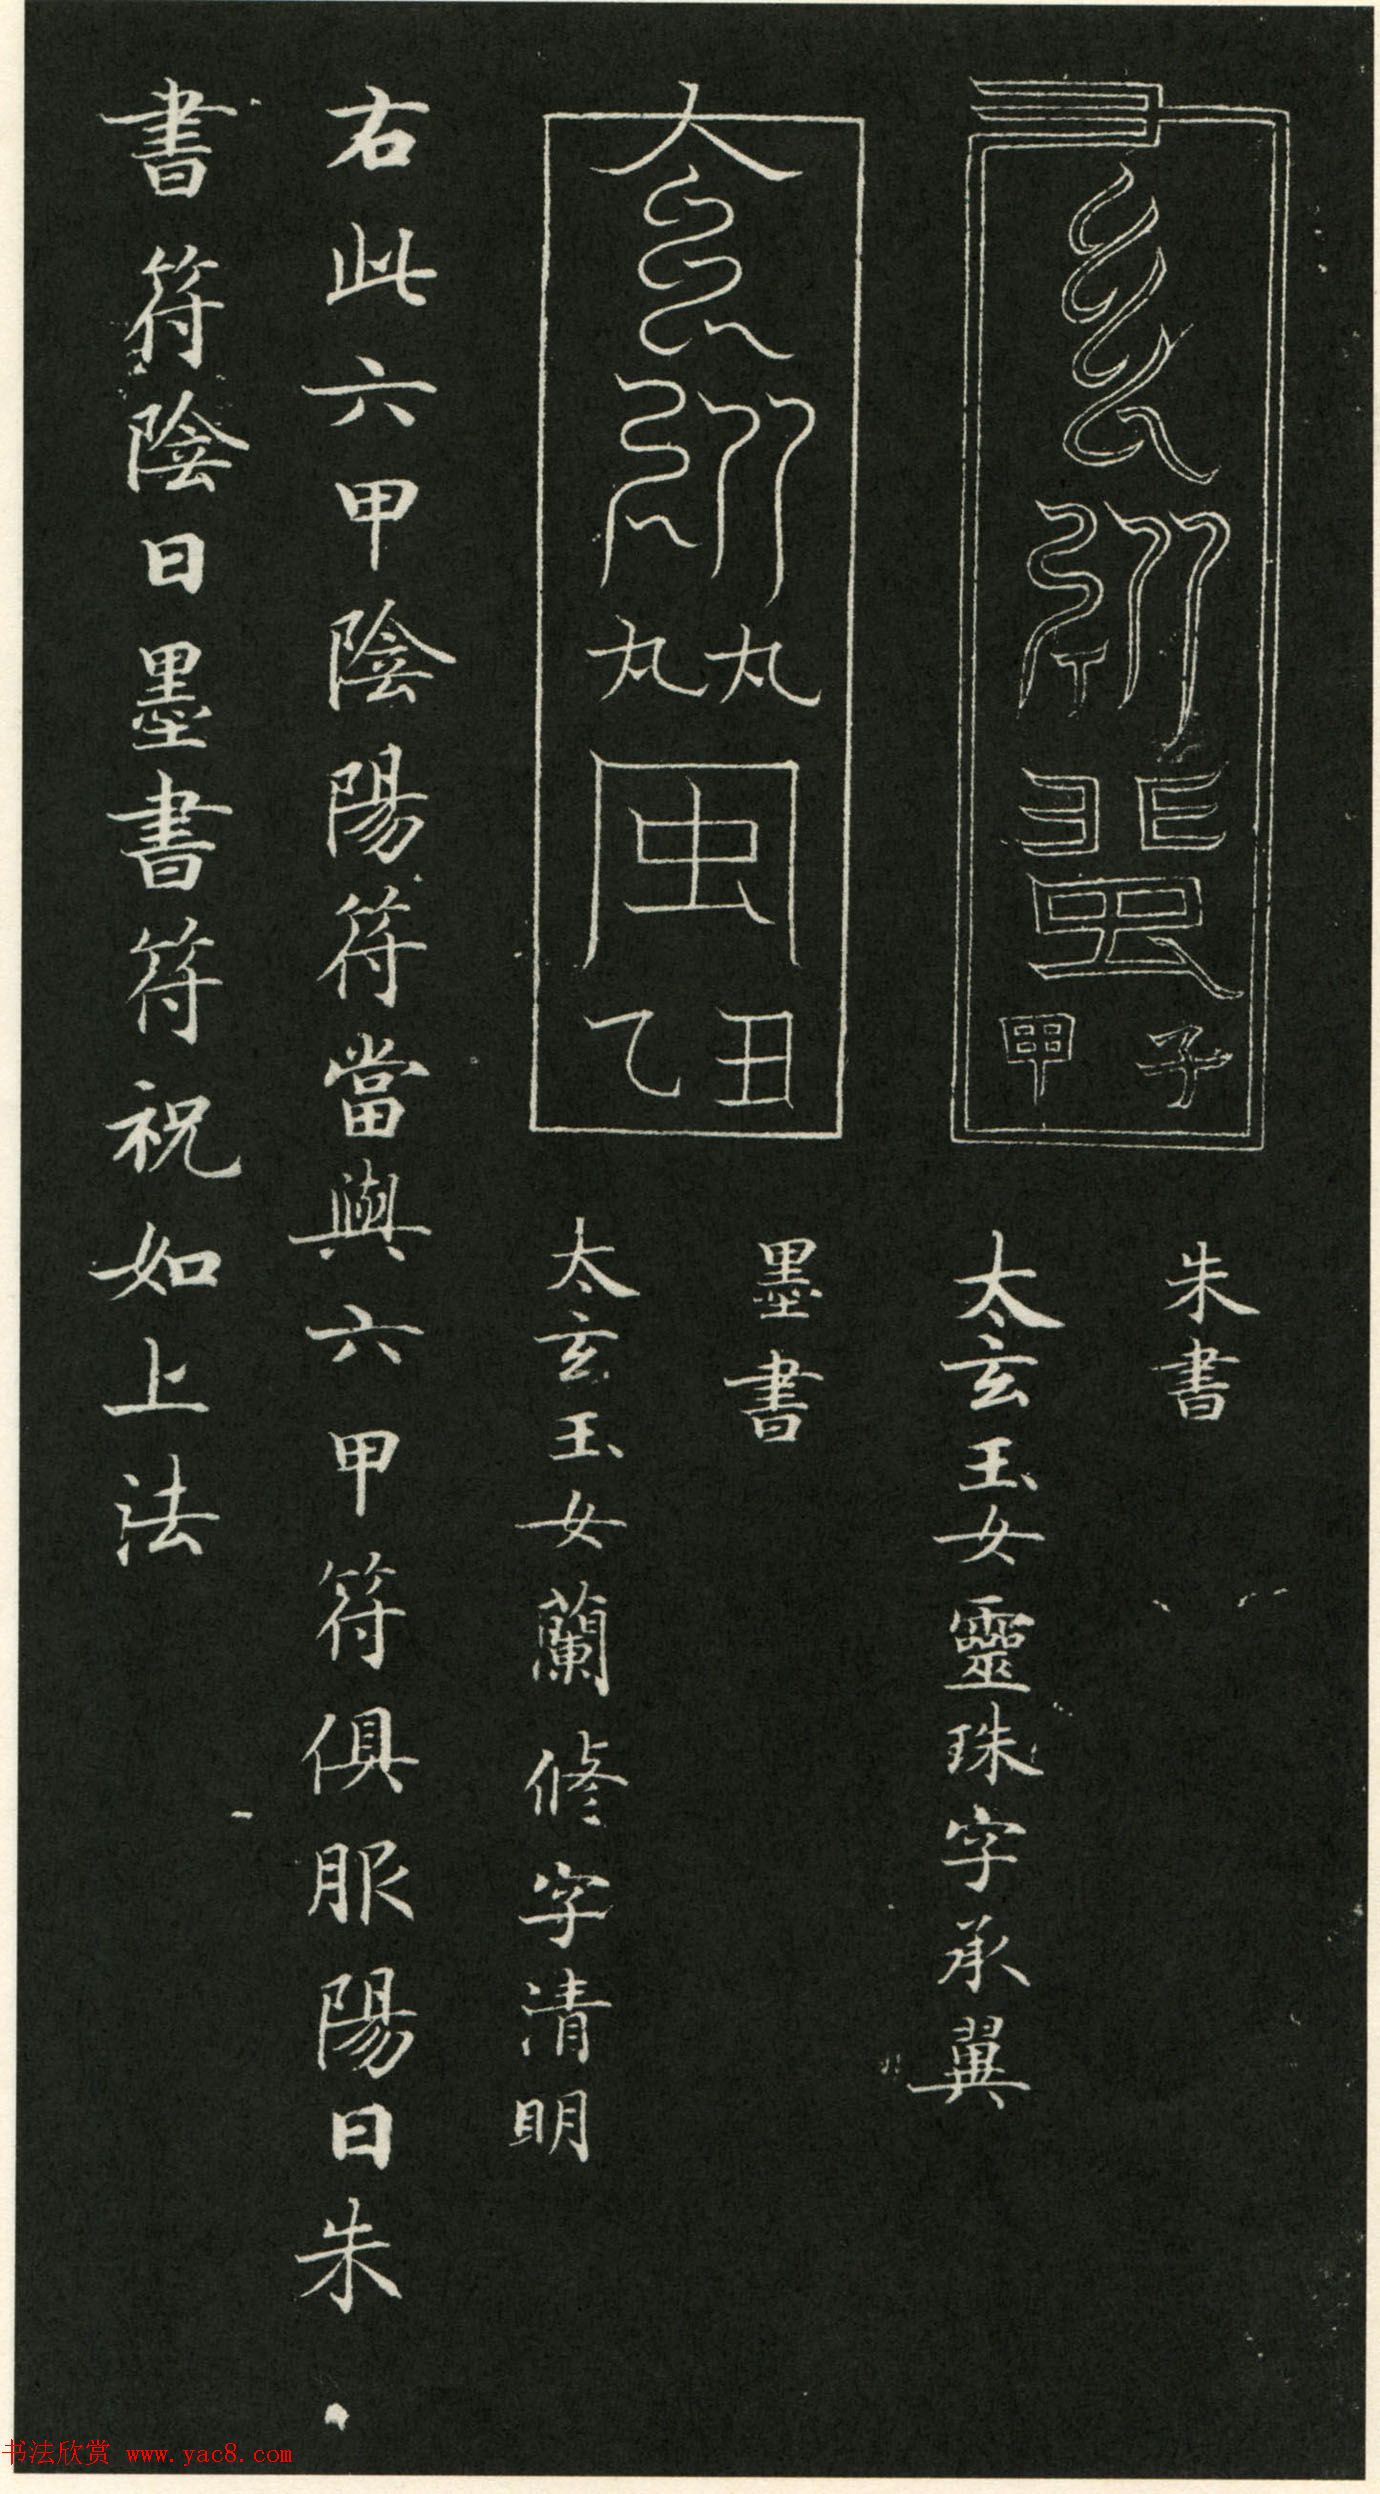 甲子
朱書
太玄玉女靈珠字承翼
乙丑
墨書
太玄玉女蘭修字清明
右此六甲陰陽符當與六甲符俱服陽日朱
書符陰日墨書符祝如上法
书法欣赏 www.yac8.com